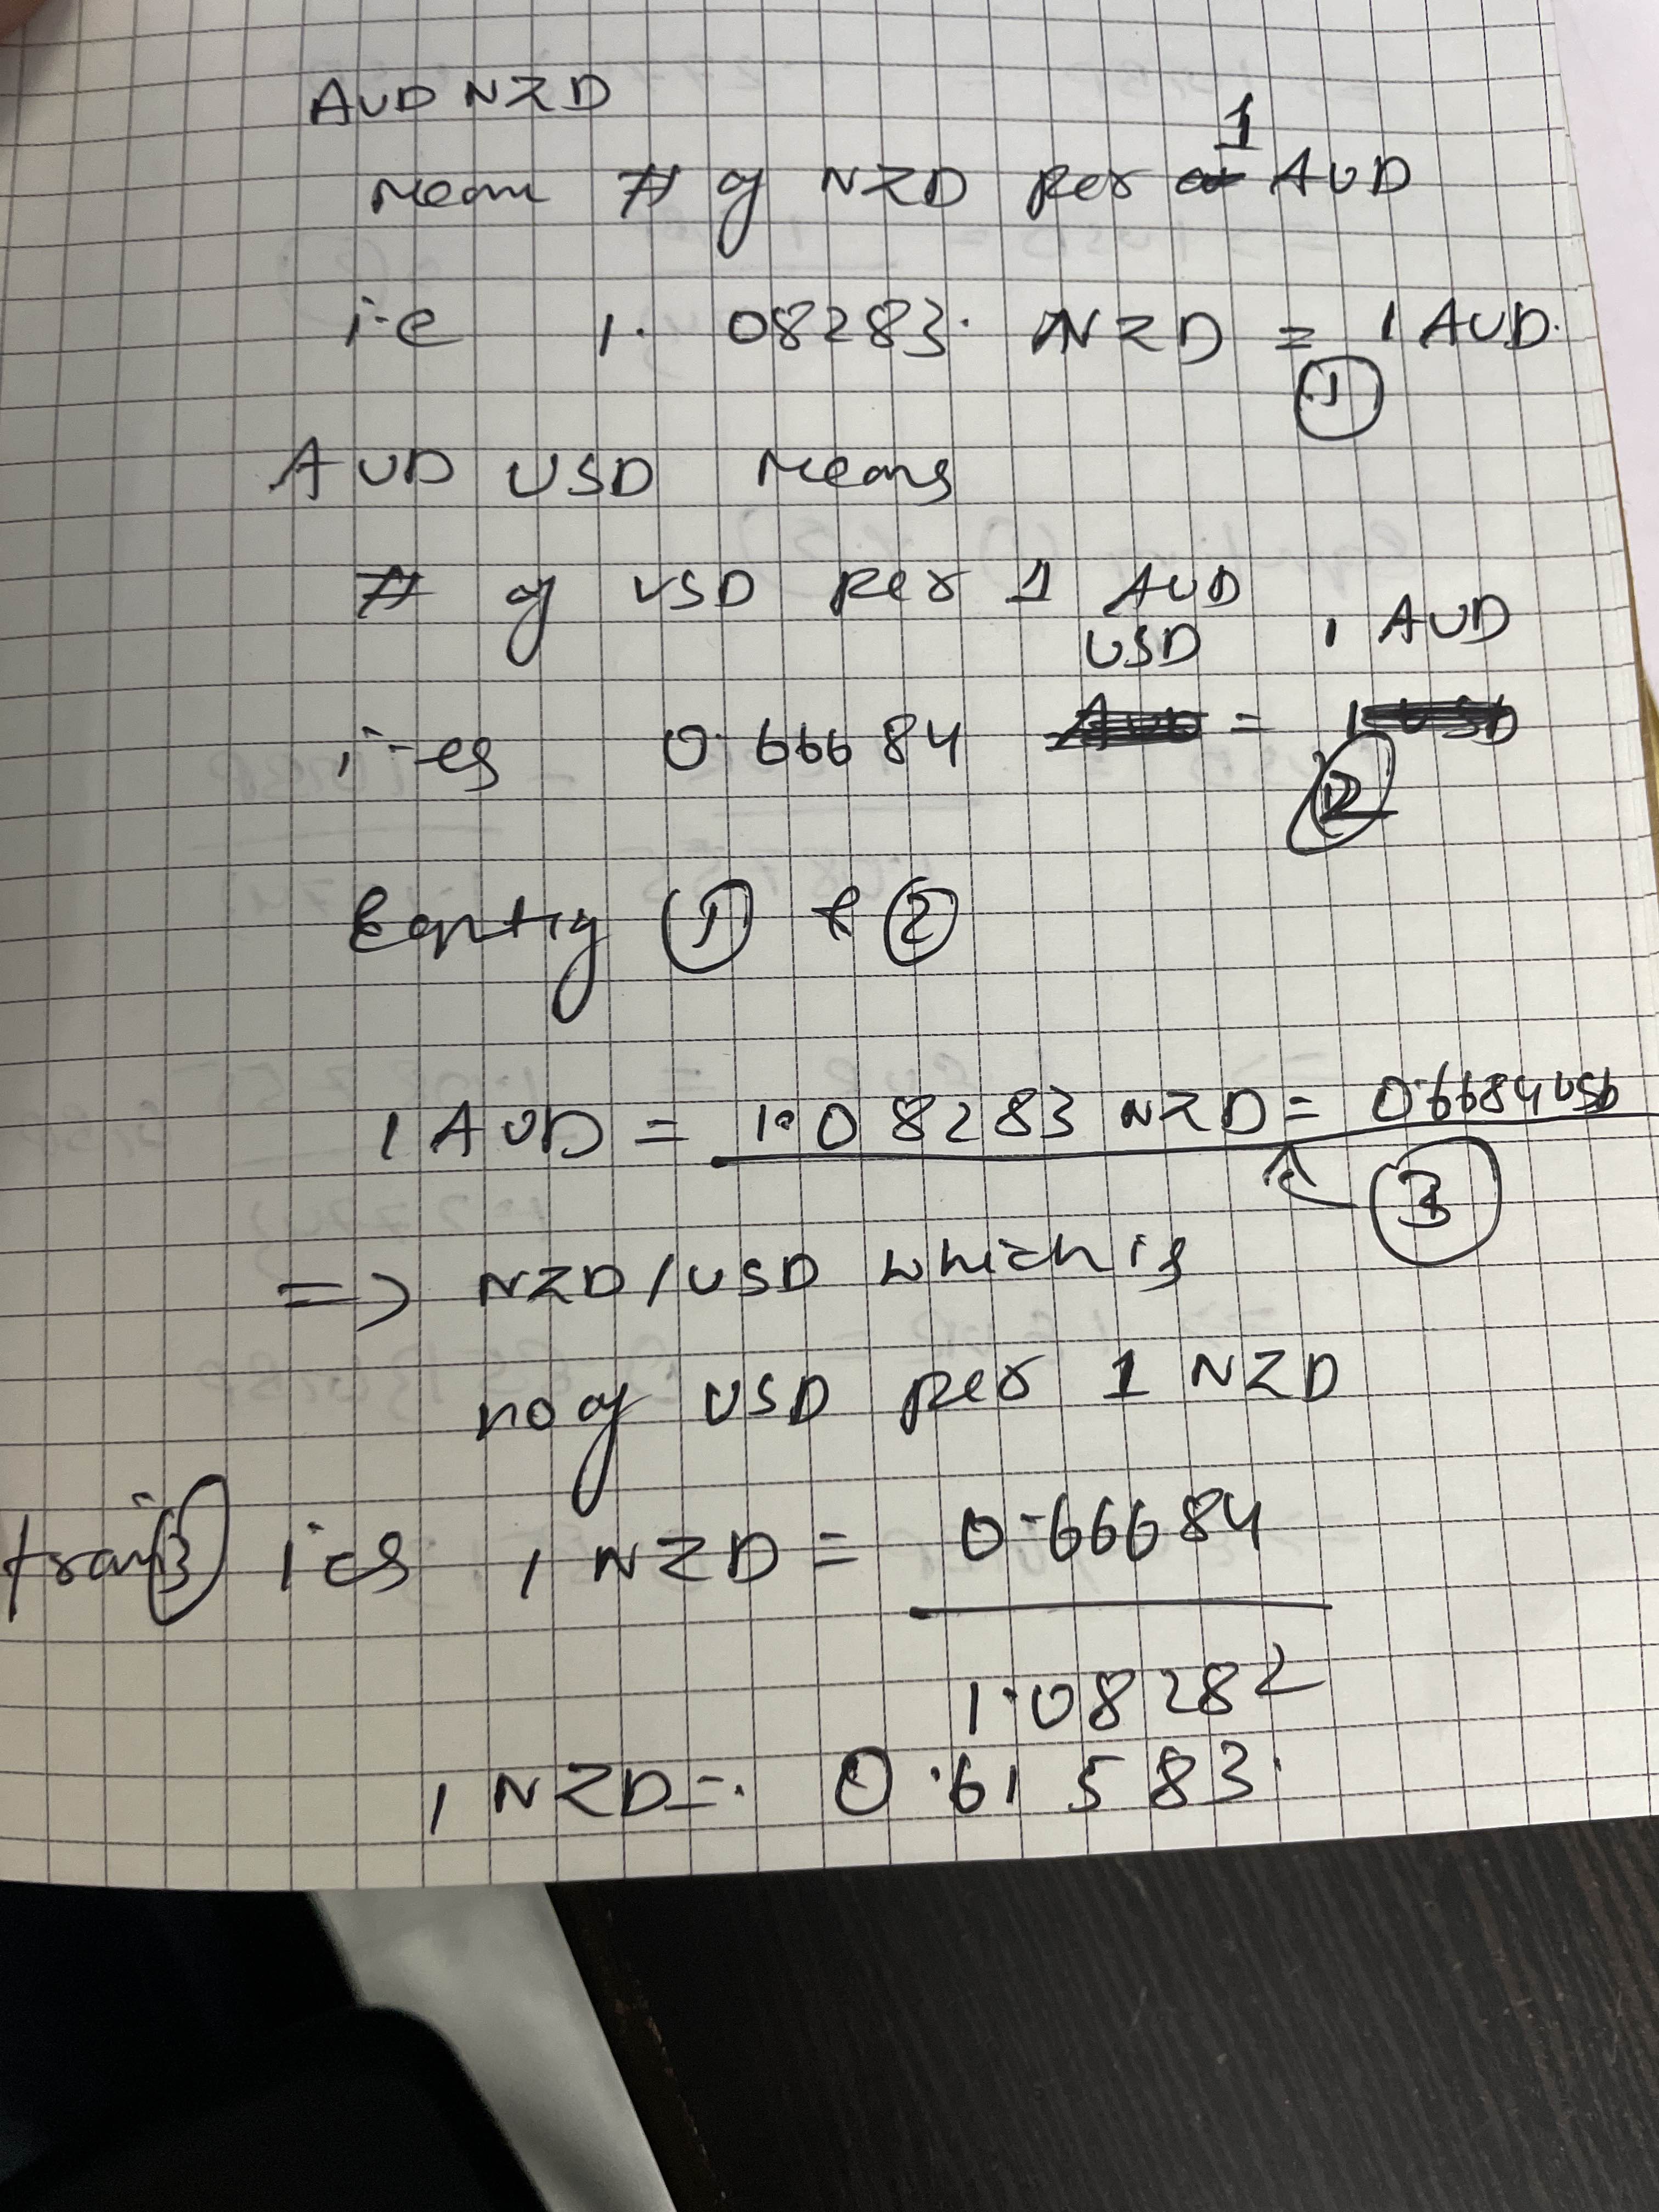 AUD NZD
1
Mean # of NZD Per AUD
i.e 1. 08283. NZD = 1 AUD.
①
AUD USD Means
# of USD Per 1 AUD
USD 1 AUD
i.es 0.66684 = 1
②
① & ②
1 AUD = 1.08283 NZD = 0.6684 USD
③
=> NZD/USD which is
no of USD per 1 NZD
from ③ i es 1 NZD = 0.66684
1.08282
1 NZD =. 0.61583.